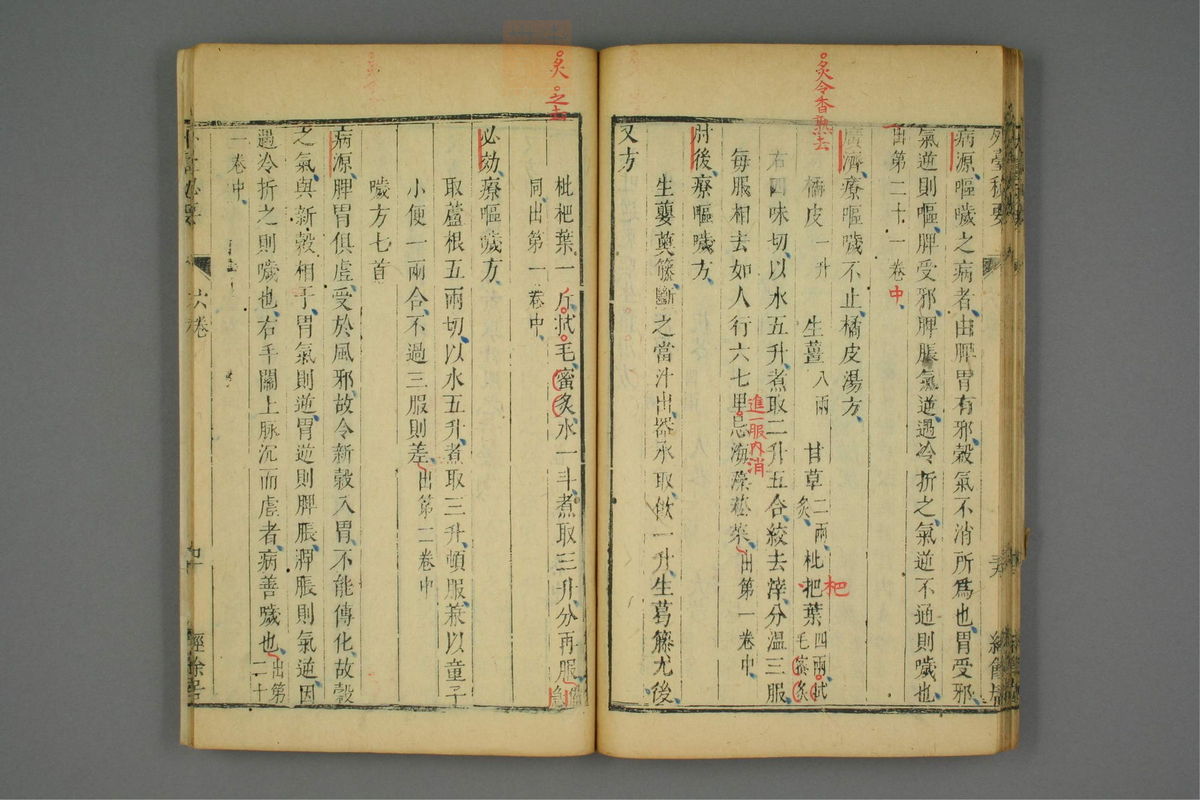 炙令香熟去
病源嘔噦之病者由脾胃有邪穀氣不消所爲也胃受邪
氣逆則嘔脾受邪脾脹氣逆遇冷折之氣逆不通則噦也
出第二十一卷中
廣濟療嘔噦不止橘皮湯方
橘皮一升 生薑八兩 甘草二兩炙 枇杷葉四兩拭毛蜜炙
杷
右四味切以水五升煮取二升五合絞去滓分溫三服
每服相去如人行六七里忌海藻菘菜出第一卷中
進一服内消
肘後療嘔噦方
生蘡薁籐斷之當汁出器承取飲一升生葛籐尤後
又方
炙
之去
枇杷葉一斤拭毛蜜炙水一斗煮取三升分再服
同出第一卷中
必効療嘔噦方
取蘆根五兩切以水五升煮取三升頓服兼以童子
小便一兩合不過三服則差出第二卷中
噦方七首
病源脾胃俱虛受於風邪故令新穀入胃不能傳化故穀
之氣與新穀相干胃氣則逆胃逆則脾脹脾脹則氣逆因
遇冷折之則噦也右手關上脉沉而虛者病善噦也出第二十
一卷中
六卷
經餘居